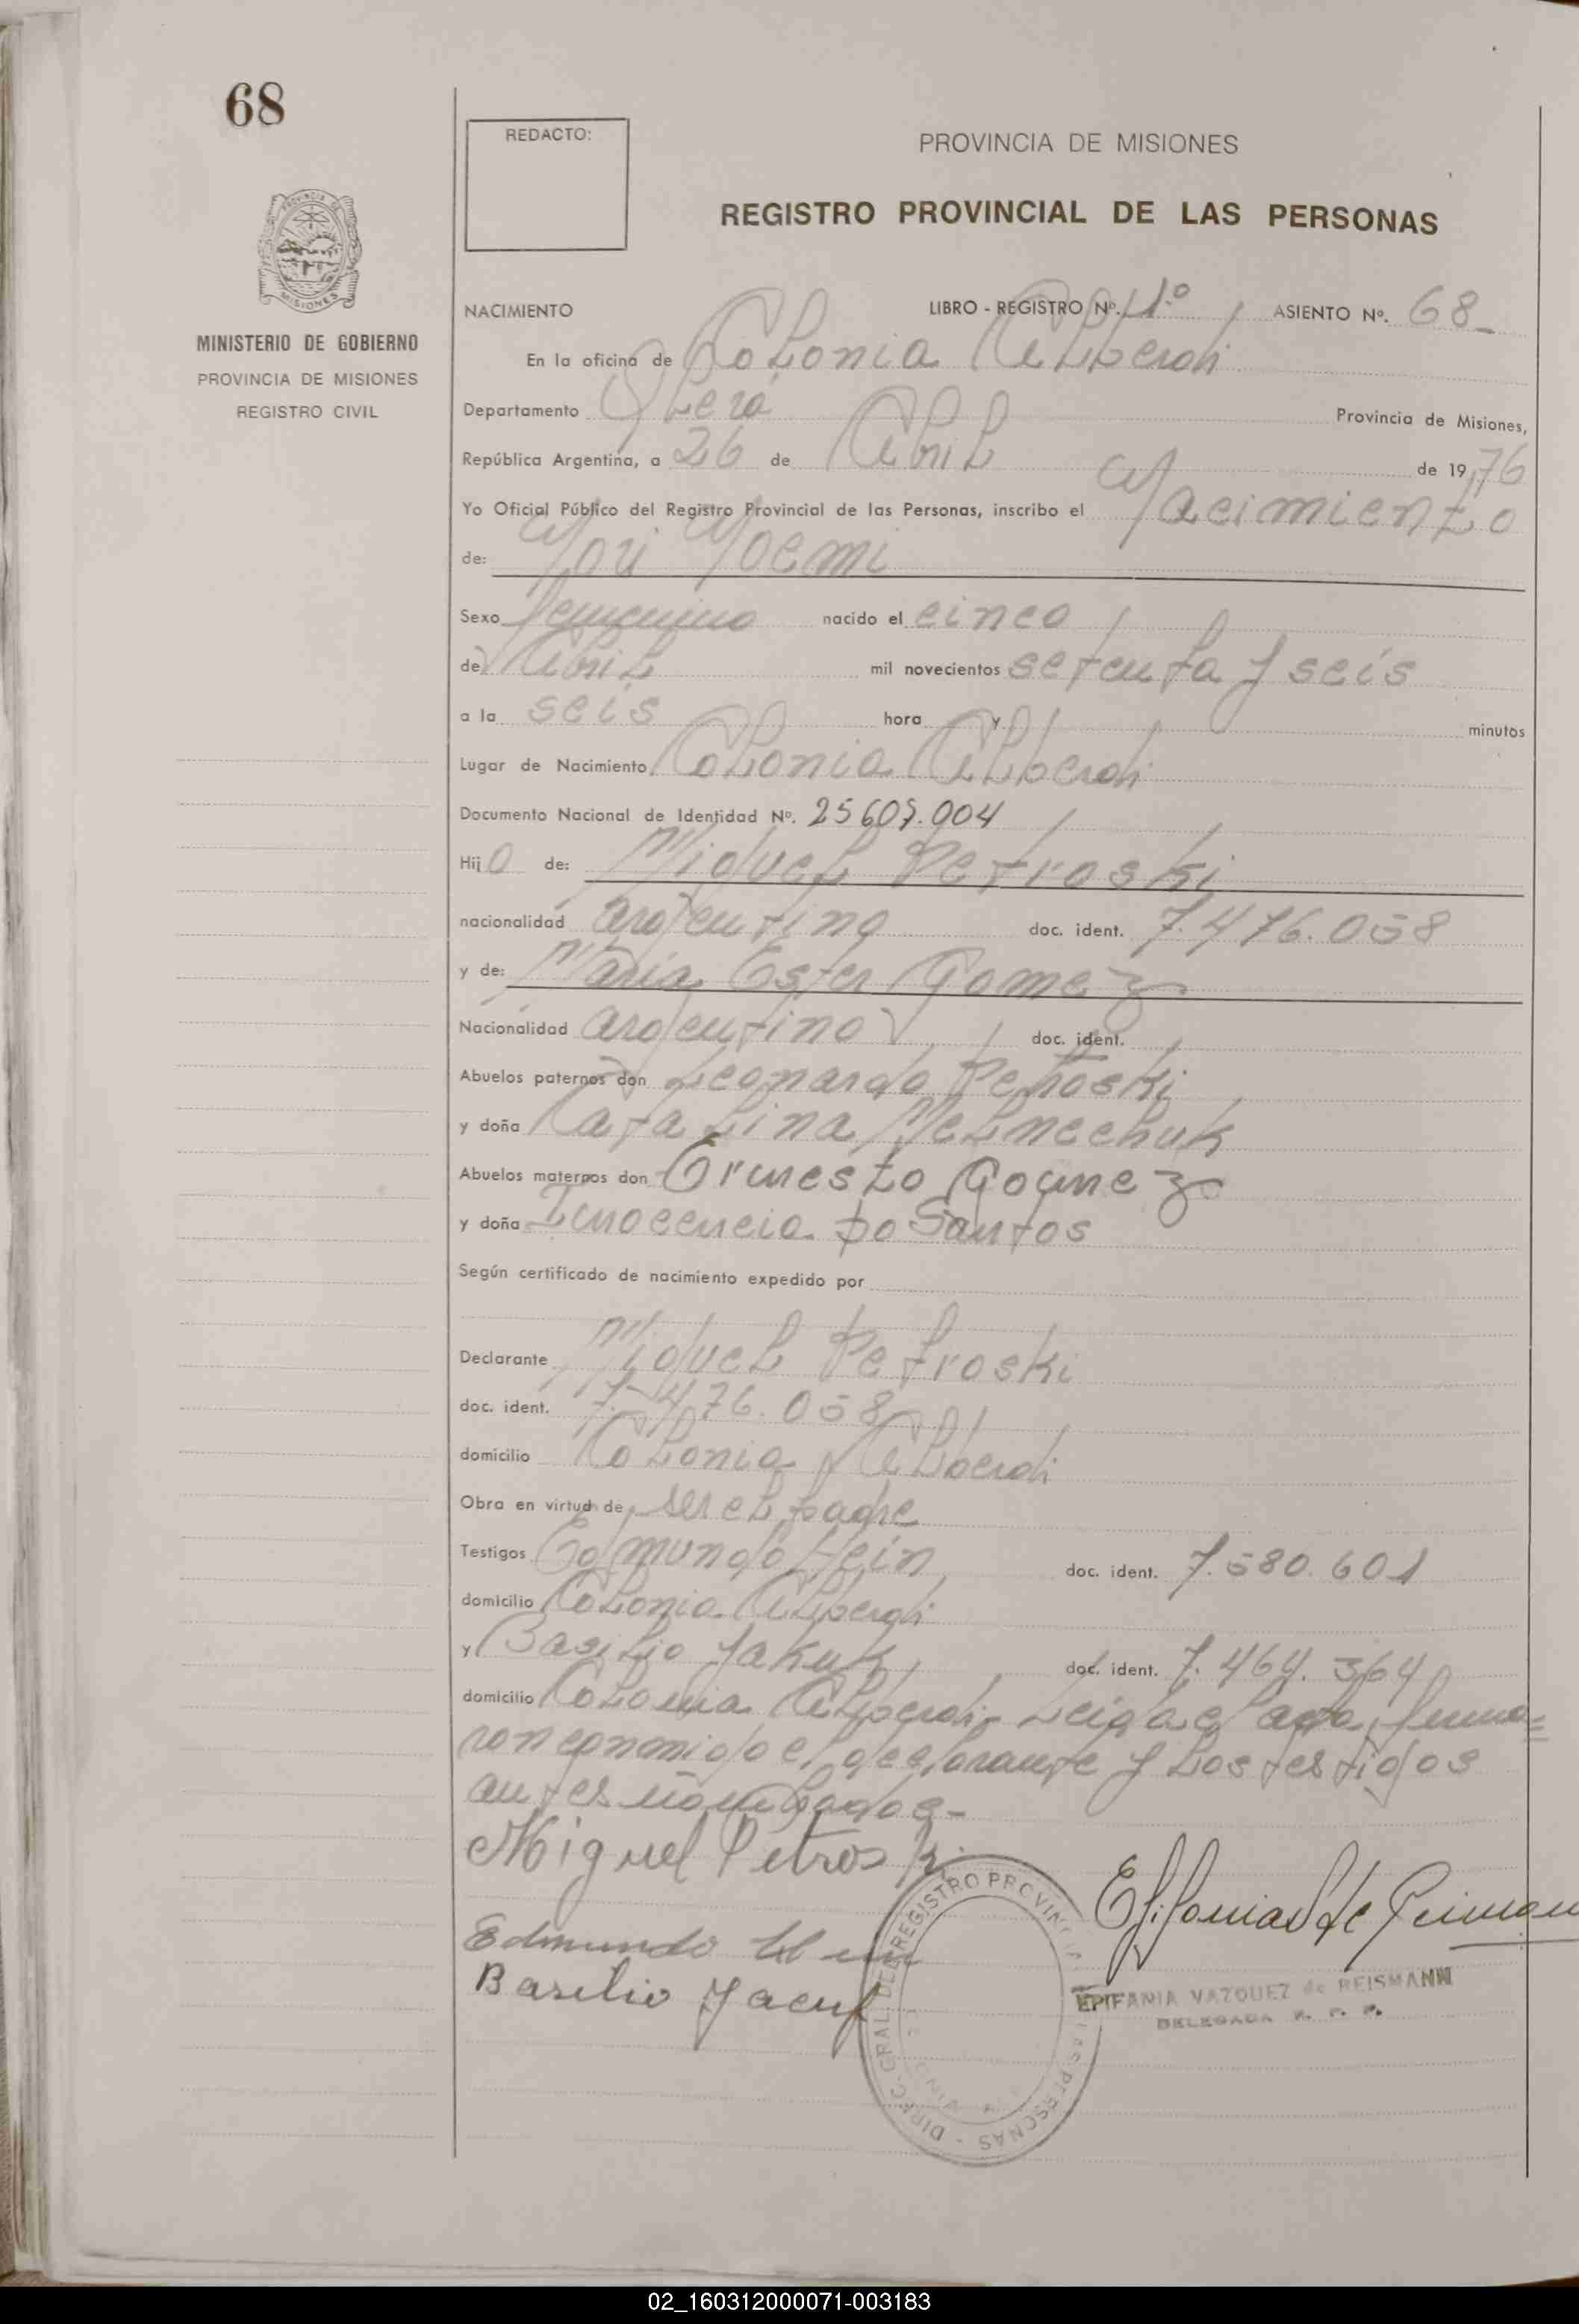 68
REDACTO:
PROVINCIA DE MISIONES
REGISTRO PROVINCIAL DE LAS PERSONAS
PROVINCIA DE
MISIONES
MINISTERIO DE GOBIERNO
PROVINCIA DE MISIONES
REGISTRO CIVIL
NACIMIENTO LIBRO - REGISTRO Nº. 1º ASIENTO Nº. 68
En la oficina de Colonia Alberdi
Departamento Oberá Provincia de Misiones,
República Argentina, a 26 de Abril de 1976
Yo Oficial Público del Registro Provincial de las Personas, inscribo el Nacimiento
de: Noemi
Sexo femenino nacido el cinco
de Abril mil novecientos setenta y seis
a la seis hora y minutos
Lugar de Nacimiento Colonia Alberdi
Documento Nacional de Identidad Nº. 25607.004
Hijo de: Miguel Petroski
nacionalidad argentino doc. ident. 7.476.058
y de: Maria Ester Gomez
Nacionalidad argentino doc. ident.
Abuelos paternos don Leonardo Petroski
y doña Catalina Melnechuk
Abuelos maternos don Ornesto Gomez
y doña Inocencia Do Santos
Según certificado de nacimiento expedido por
Declarante Miguel Petroski
doc. ident. 7.476.058
domicilio Colonia Alberdi
Obra en virtud de ser el padre
Testigos Edmundo Hein doc. ident. 7.580.601
domicilio Colonia Alberdi
y Basilio Jakuk doc. ident. 7.464.364
domicilio Colonia Alberdi- Leida el acta, firma=
ron conmigo el declarante y los testigos
antes nombrados-
Miguel Petroski
Edmundo
Basilio
DIREC. GRAL. DEL REGISTRO PROVINCIAL DE LAS PERSONAS
EPIFANIA VAZQUEZ de REISMANN
DELEGADA R. P. P.
02_160312000071-003183